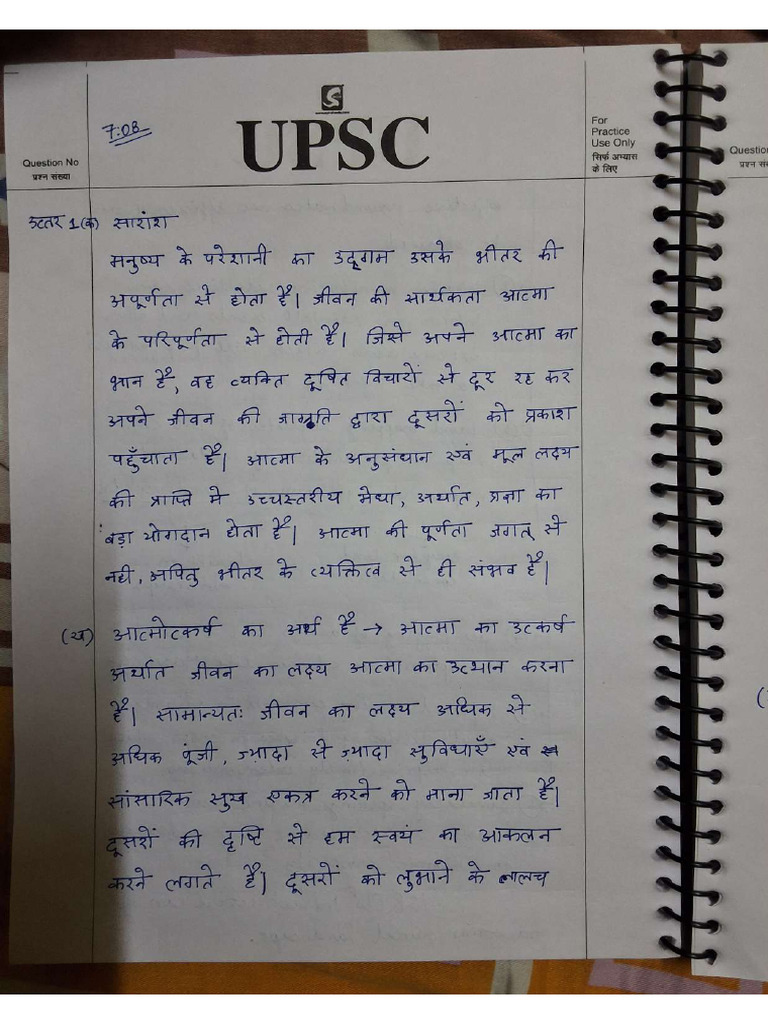 7:08
UPSC
Question No
प्रश्न संख्या
For
Practice
Use Only
सिर्फ अभ्यास
के लिए
Question
प्रश्न सं
उत्तर 1(क) सारांश
मनुष्य के परेशानी का उद्गम उसके भीतर की
अपूर्णता से होता है। जीवन की सार्थकता आत्मा
के परिपूर्णता से होती है। जिसे अपने आत्मा का
भान है, वह व्यक्ति दूषित विचारों से दूर रह कर
अपने जीवन की जागृति द्वारा दूसरों को प्रकाश
पहुँचाता है। आत्मा के अनुसंधान एवं मूल लक्ष्य
की प्राप्ति मे उच्चस्तरीय मेधा, अर्थात, प्रज्ञा का
बड़ा योगदान होता है। आत्मा की पूर्णता जगत् से
नही, अपितु भीतर के व्यक्तित्व से ही संभव है।
(ख) आत्मोत्कर्ष का अर्थ है → आत्मा का उत्कर्ष
अर्थात जीवन का लक्ष्य आत्मा का उत्थान करना
है। सामान्यतः जीवन का लक्ष्य अधिक से
अधिक पूंजी, ज्यादा से ज़्यादा सुविधाएँ एवं
सांसारिक सुख एकत्र करने को माना जाता है।
दूसरों की दृष्टि से हम स्वयं का आकलन
करने लगते है। दूसरों को लुभाने के लालच